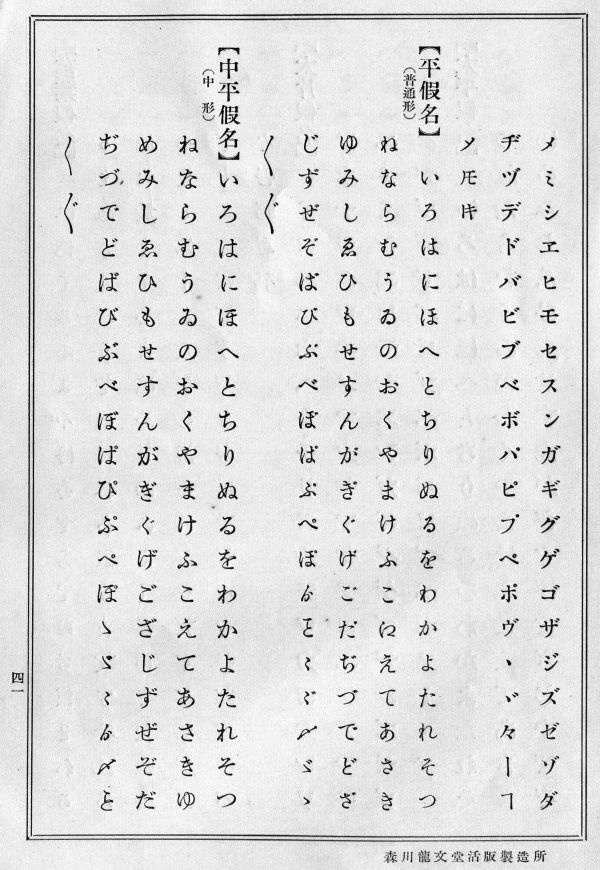 メミシヱヒモセスンガギグゲゴザジズゼゾダ
ヂヅデドバビブベボパピプペポヴヽヾ々ーヿ
〆𪜈
【平假名】
(普通形)
いろはにほへとちりぬるをわかよたれそつ
ねならむうゐのおくやまけふこえてあさき
ゆみしゑひもせすんがぎぐげごだぢづでどざ
じずぜぞばびぶべぼぱぷぺぽゟ〻〆ゞゝ
〱〲
【中平假名】
(中形)
いろはにほへとちりぬるをわかよたれそつ
ねならむうゐのおくやまけふこえてあさきゆ
めみしゑひもせすんがぎぐげござじずぜぞだ
ぢづでどばびぶべぼぱぴぷぺぽゝゞ〻ゟ〆
〱〲
四一
森川龍文堂活版製造所